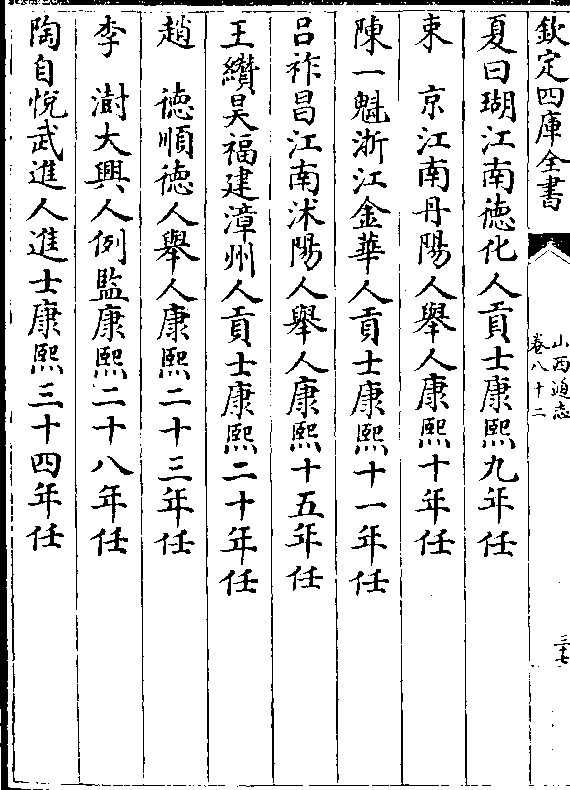 欽定四庫全書
山西通志
卷八十二
三十七
夏曰瑚江南德化人貢士康熙九年任
束　京江南丹陽人舉人康熙十年任
陳一魁浙江金華人貢士康熙十一年任
吕祚昌江南沭陽人舉人康熙十五年任
王纘昊福建漳州人貢士康熙二十年任
趙　德順德人舉人康熙二十三年任
李　澍大興人例監康熙二十八年任
陶自悅武進人進士康熙三十四年任